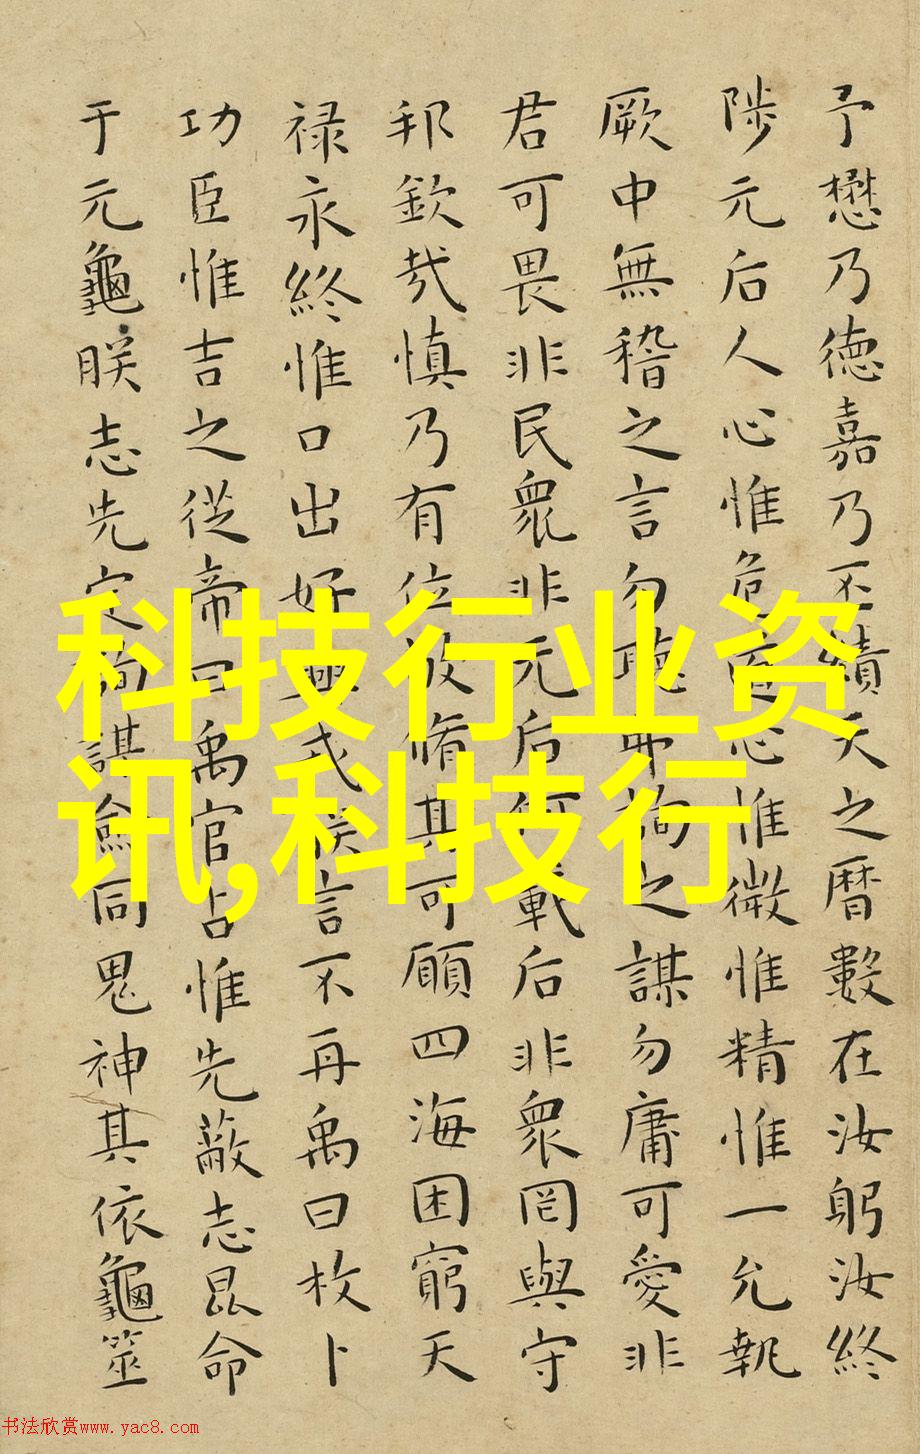 予懋乃德嘉乃丕績天之曆數在汝躬汝終
陟元后人心惟危道心惟微惟精惟一允執
厥中無稽之言勿聽弗詢之謀勿庸可愛非
君可畏非民衆非元后何戴后非衆罔與守
邦欽哉慎乃有位敬脩其可願四海困窮天
禄永終惟口出好興戎朕言不再禹曰枚卜
功臣惟吉之從帝曰禹官占惟先蔽志昆命
于元龜朕志先定詢謀僉同鬼神其依龜筮
科技行业资
讯,科技行
书法欣赏www.yac8.com